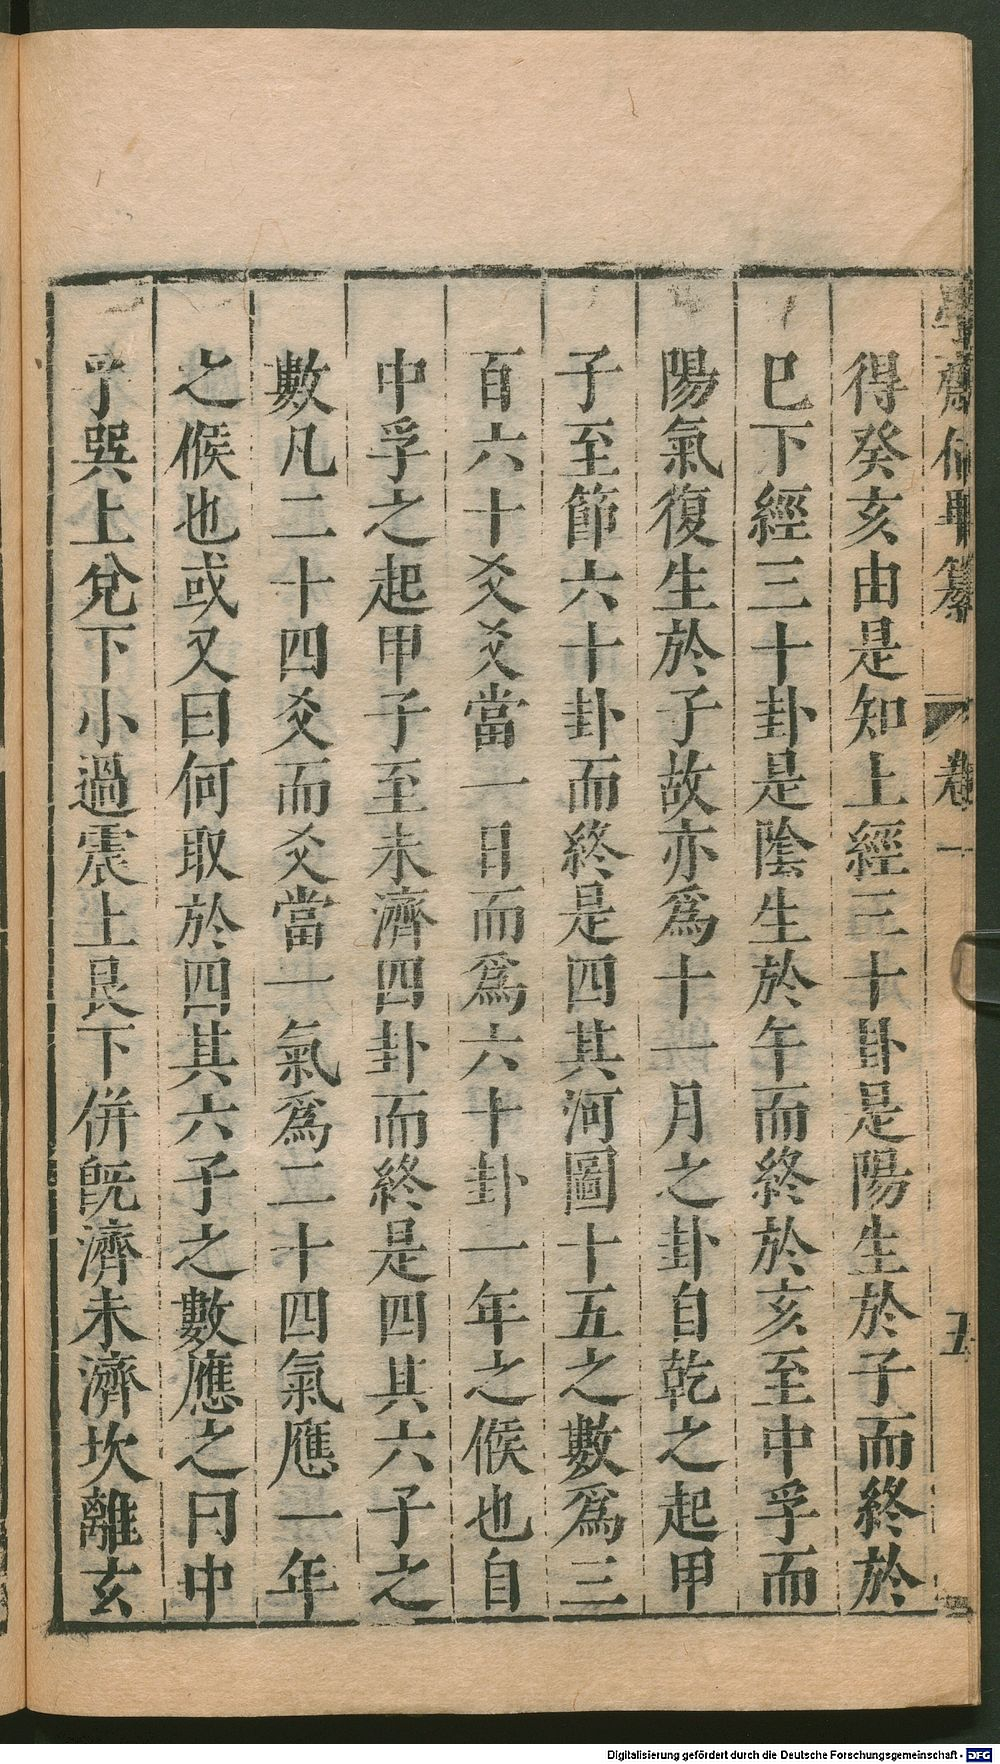 學齋佔畢纂 卷一 五
得癸亥由是知上經三十卦是陽生於子而終於
巳下經三十卦是陰生於午而終於亥至中孚而
陽氣復生於子故亦爲十一月之卦自乾之起甲
子至節六十卦而終是四其河圖十五之數爲三
百六十爻爻當一日而爲六十卦一年之候也自
中孚之起甲子至未濟四卦而終是四其六子之
數凡二十四爻而爻當一氣爲二十四氣應一年
之候也或又曰何取於四其六子之數應之曰中
孚巽上兌下小過震上艮下併旣濟未濟坎離玄
Digitalisierung gefördert durch die Deutsche Forschungsgemeinschaft - DFG